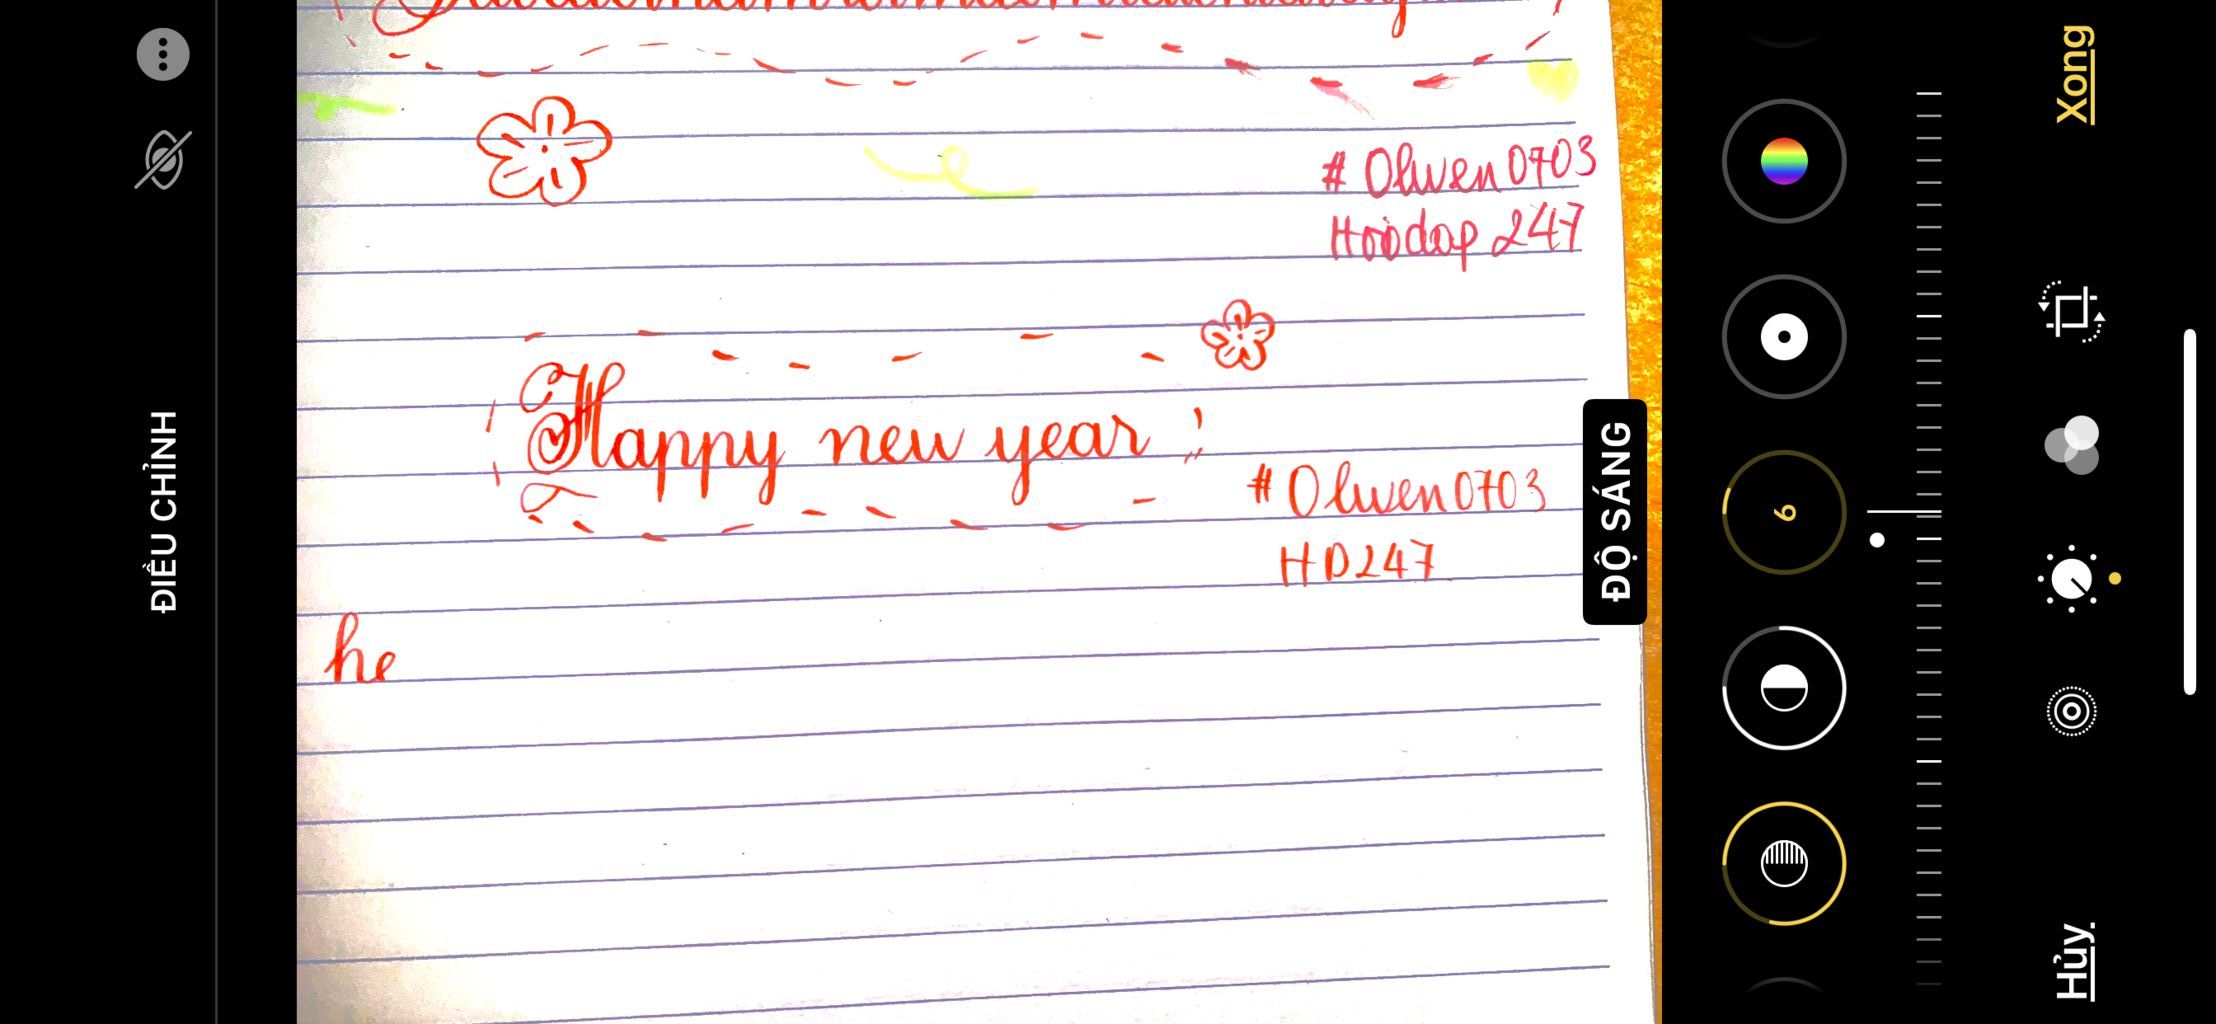 # Olwen0703
Hoidap 247
Happy new year !
# Olwen0703
HD247
he
ĐIỀU CHỈNH
ĐỘ SÁNG
6
Xong
Hủy